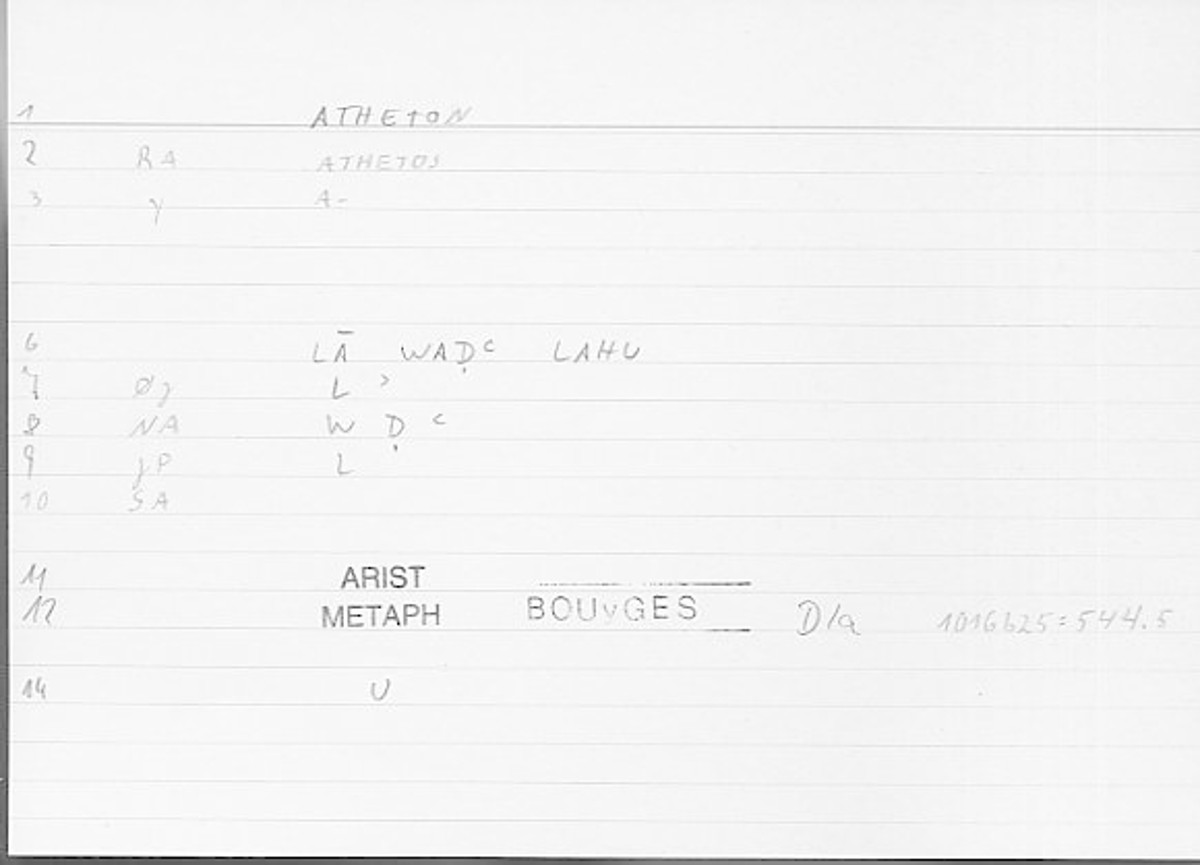 1 ATHETON
2 RA ATHETOS
3 γ A-
6 LĀ WAḌʿ LAHU
7 Øγ L ʾ
8 NA W Ḍ ʿ
9 γP L
10 SA
11 ARIST
12 METAPH BOUYGES D/a 1016b25=544.5
14 U